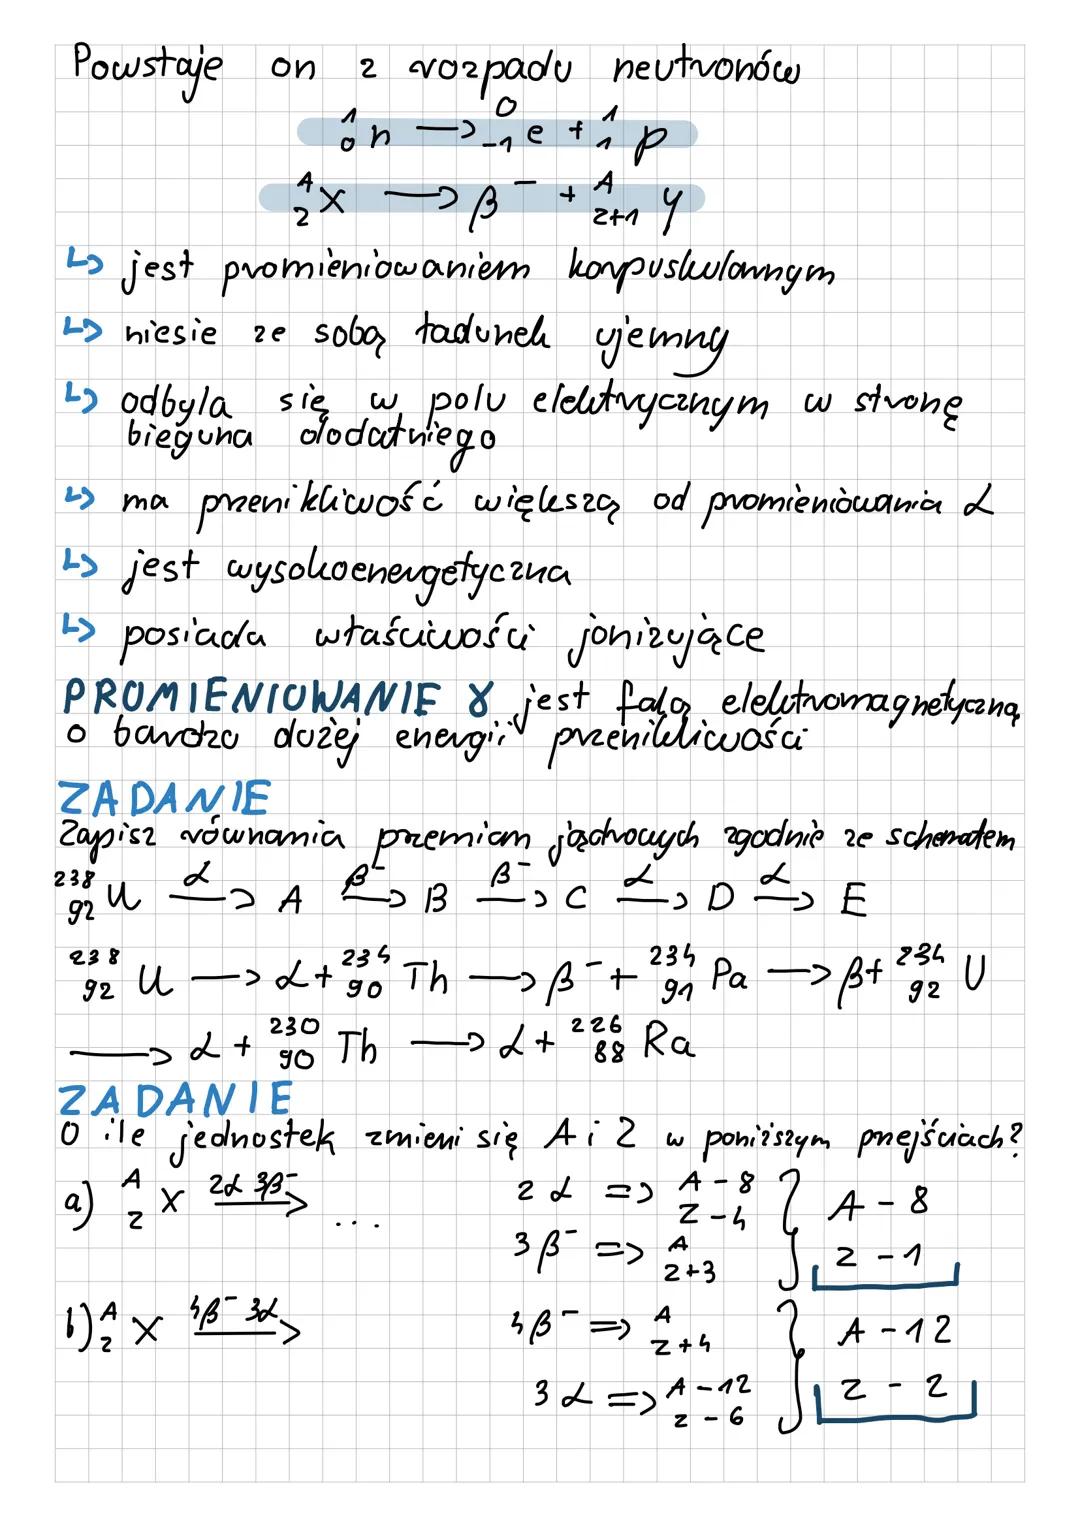 Powstaje on z rozpadu neutronów
¹₀n → ⁰₋₁e + ¹₁p
ᴬ_Z X → β⁻ + ᴬ_Z+1 Y
↳ jest promieniowaniem korpuskularnym
↳ niesie ze sobą ładunek ujemny
↳ odbyla się w polu elektrycznym w stronę
bieguna dodatniego
↳ ma przenikliwość większą od promieniowania α
↳ jest wysokoenergetyczna
↳ posiada właściwości jonizujące
PROMIENIOWANIE γ jest falą elektromagnetyczną
o bardzo dużej energii przenikliwości
ZADANIE
Zapisz równania przemian jądrowych zgodnie ze schematem
²³⁸₉₂U –α→ A –β⁻→ B –β⁻→ C –α→ D –α→ E
²³⁸₉₂U → α + ²³⁴₉₀Th → β⁻ + ²³⁴₉₁Pa → β + ²³⁴₉₂U
→ α + ²³⁰₉₀Th → α + ²²⁶₈₈Ra
ZADANIE
O ile jednostek zmieni się A i Z w poniższym przejściach?
a) ᴬ_Z X –2α 3β⁻→ ... 2α => A-8 Z-4 } A-8
3β⁻ => A Z+3 Z-1
b) ᴬ_Z X –4β⁻ 3α→ 4β⁻ => A Z+4 } A-12
3α => A-12 Z-6 Z-2